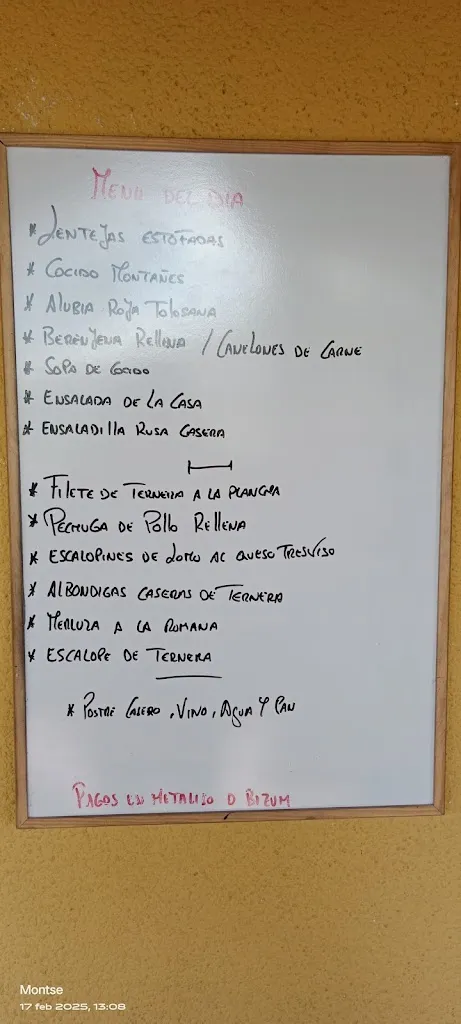 MENU DEL DIA
* LENTEJAS ESTOFADAS
* COCIDO MONTAÑES
* ALUBIA ROJA TOLOSANA
* BERENJENA RELLENA / CANELONES DE CARNE
* SOPA DE COCIDO
* ENSALADA DE LA CASA
* ENSALADILLA RUSA CASERA
* FILETE DE TERNERA A LA PLANCHA
* PECHUGA DE POLLO RELLENA
* ESCALOPINES DE LOMO AL QUESO TRESVISO
* ALBONDIGAS CASERAS DE TERNERA
* MERLUZA A LA ROMANA
* ESCALOPE DE TERNERA
* POSTRE CASERO, VINO, AGUA Y PAN
PAGOS EN METALICO O BIZUM
Montse
17 feb 2025, 13:08